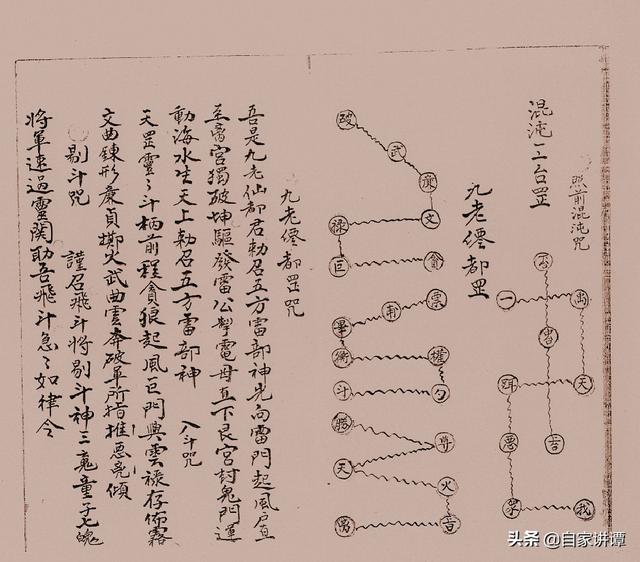 照前混沌咒
混沌三台罡
一
天
吉
我
九老僊都罡
破
武
廉
文
祿
巨
貪
甫
權
勺
斗
勝
尊
天
火
九老僊都罡咒
吾是九老仙都君勅召五方雷部神先向雷門起風
至宮獨破坤驅發雷公掣電母直下艮宮封鬼門運
動海水生天上勅召五方雷部神 入斗咒
天罡靈〻斗柄前程貪狼起風巨門興雲祿存佈霧
文曲鍊形廉貞擲火武曲雲奔破軍所指推惡傾
剔斗咒 謹召飛斗將剔斗神三魂童子七魄
將軍速過靈関助吾飛斗急〻如律令
头条 @自家讲谭